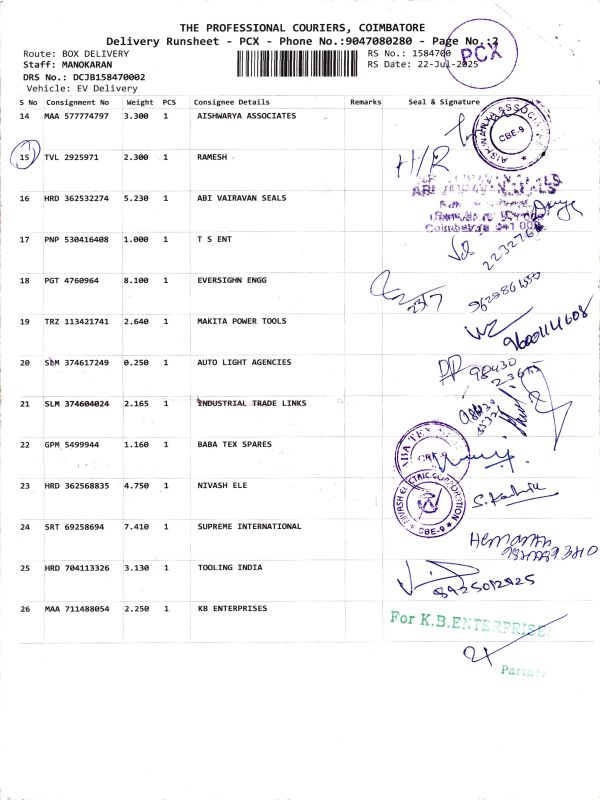 THE PROFESSIONAL COURIERS, COIMBATORE
Delivery Runsheet - PCX - Phone No.:9047080280 - Page No.:2
Route: BOX DELIVERY RS No.: 1584700
Staff: MANOKARAN RS Date: 22-Jul-2025
PCX
DRS No.: DCJB158470002
Vehicle: EV Delivery
S No Consignment No Weight PCS Consignee Details Remarks Seal & Signature
14 MAA 577774797 3.300 1 AISHWARYA ASSOCIATES
AISHWARYA ASSOCIATES CBE-9
15 TVL 2925971 2.300 1 RAMESH
H/R
16 HRD 362532274 5.230 1 ABI VAIRAVAN SEALS
ABI VAIRAVAN SEALS
Coimbatore 641 009
17 PNP 530416408 1.000 1 T S ENT
18 PGT 4760964 8.100 1 EVERSIGHN ENGG
23/7
19 TRZ 113421741 2.640 1 MAKITA POWER TOOLS
20 SLM 374617249 0.250 1 AUTO LIGHT AGENCIES
98430
21 SLM 374604024 2.165 1 INDUSTRIAL TRADE LINKS
22 GPM 5499944 1.160 1 BABA TEX SPARES
23 HRD 362568835 4.750 1 NIVASH ELE
NIVASH ELECTRIC CORPORATION CBE-9
S. Karthik
24 SRT 69258694 7.410 1 SUPREME INTERNATIONAL
25 HRD 704113326 3.130 1 TOOLING INDIA
8925012925
26 MAA 711488054 2.250 1 KB ENTERPRISES
For K.B.ENTERPRISES
Partner